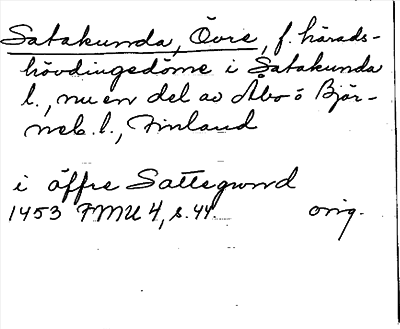 Satakunda, Övre, f. härads-
hövdingedöme i Satakunda
l., nu en del av Åbo o Björ-
neb. l., Finland
i öffre Sattegund
1453 FMU 4, s. 44. orig.